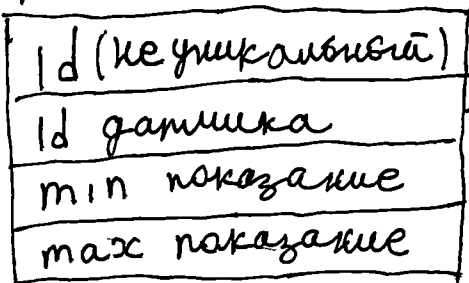 id (не уникальный)
id датчика
min показание
max показание